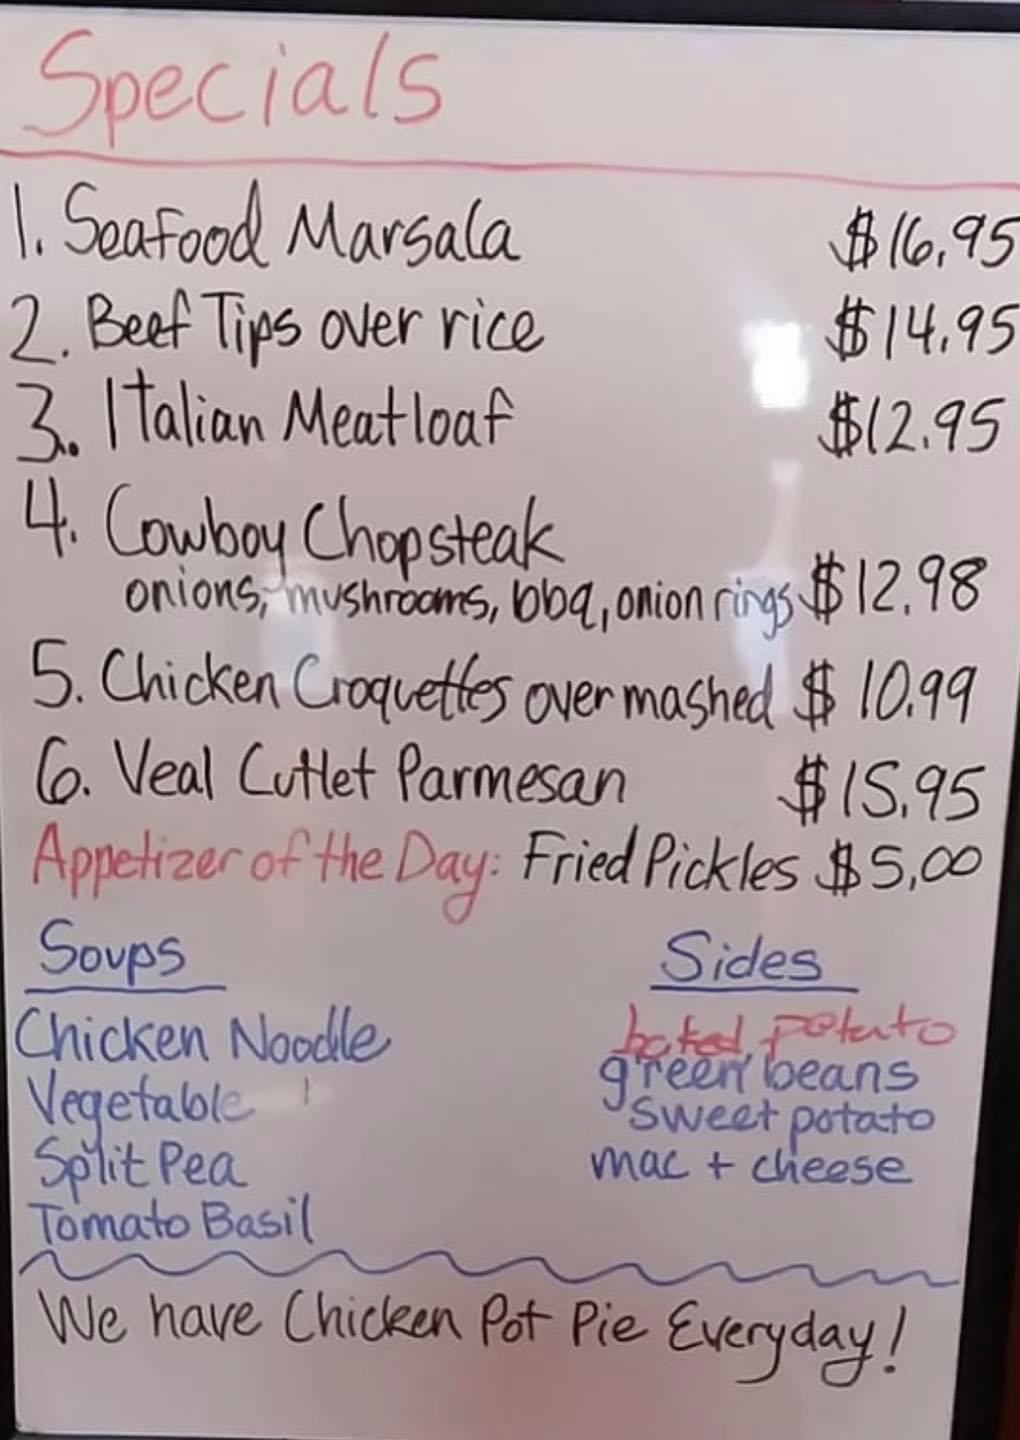 Specials
1. Seafood Marsala $16.95
2. Beef Tips over rice $14.95
3. Italian Meatloaf $12.95
4. Cowboy Chopsteak
onions, mushrooms, bbq, onion rings $12.98
5. Chicken Croquettes over mashed $10.99
6. Veal Cutlet Parmesan $15.95
Appetizer of the Day: Fried Pickles $5.00
Soups Sides
Chicken Noodle potato
Vegetable green beans
sweet potato
Split Pea mac + cheese
Tomato Basil
We have Chicken Pot Pie Everyday!